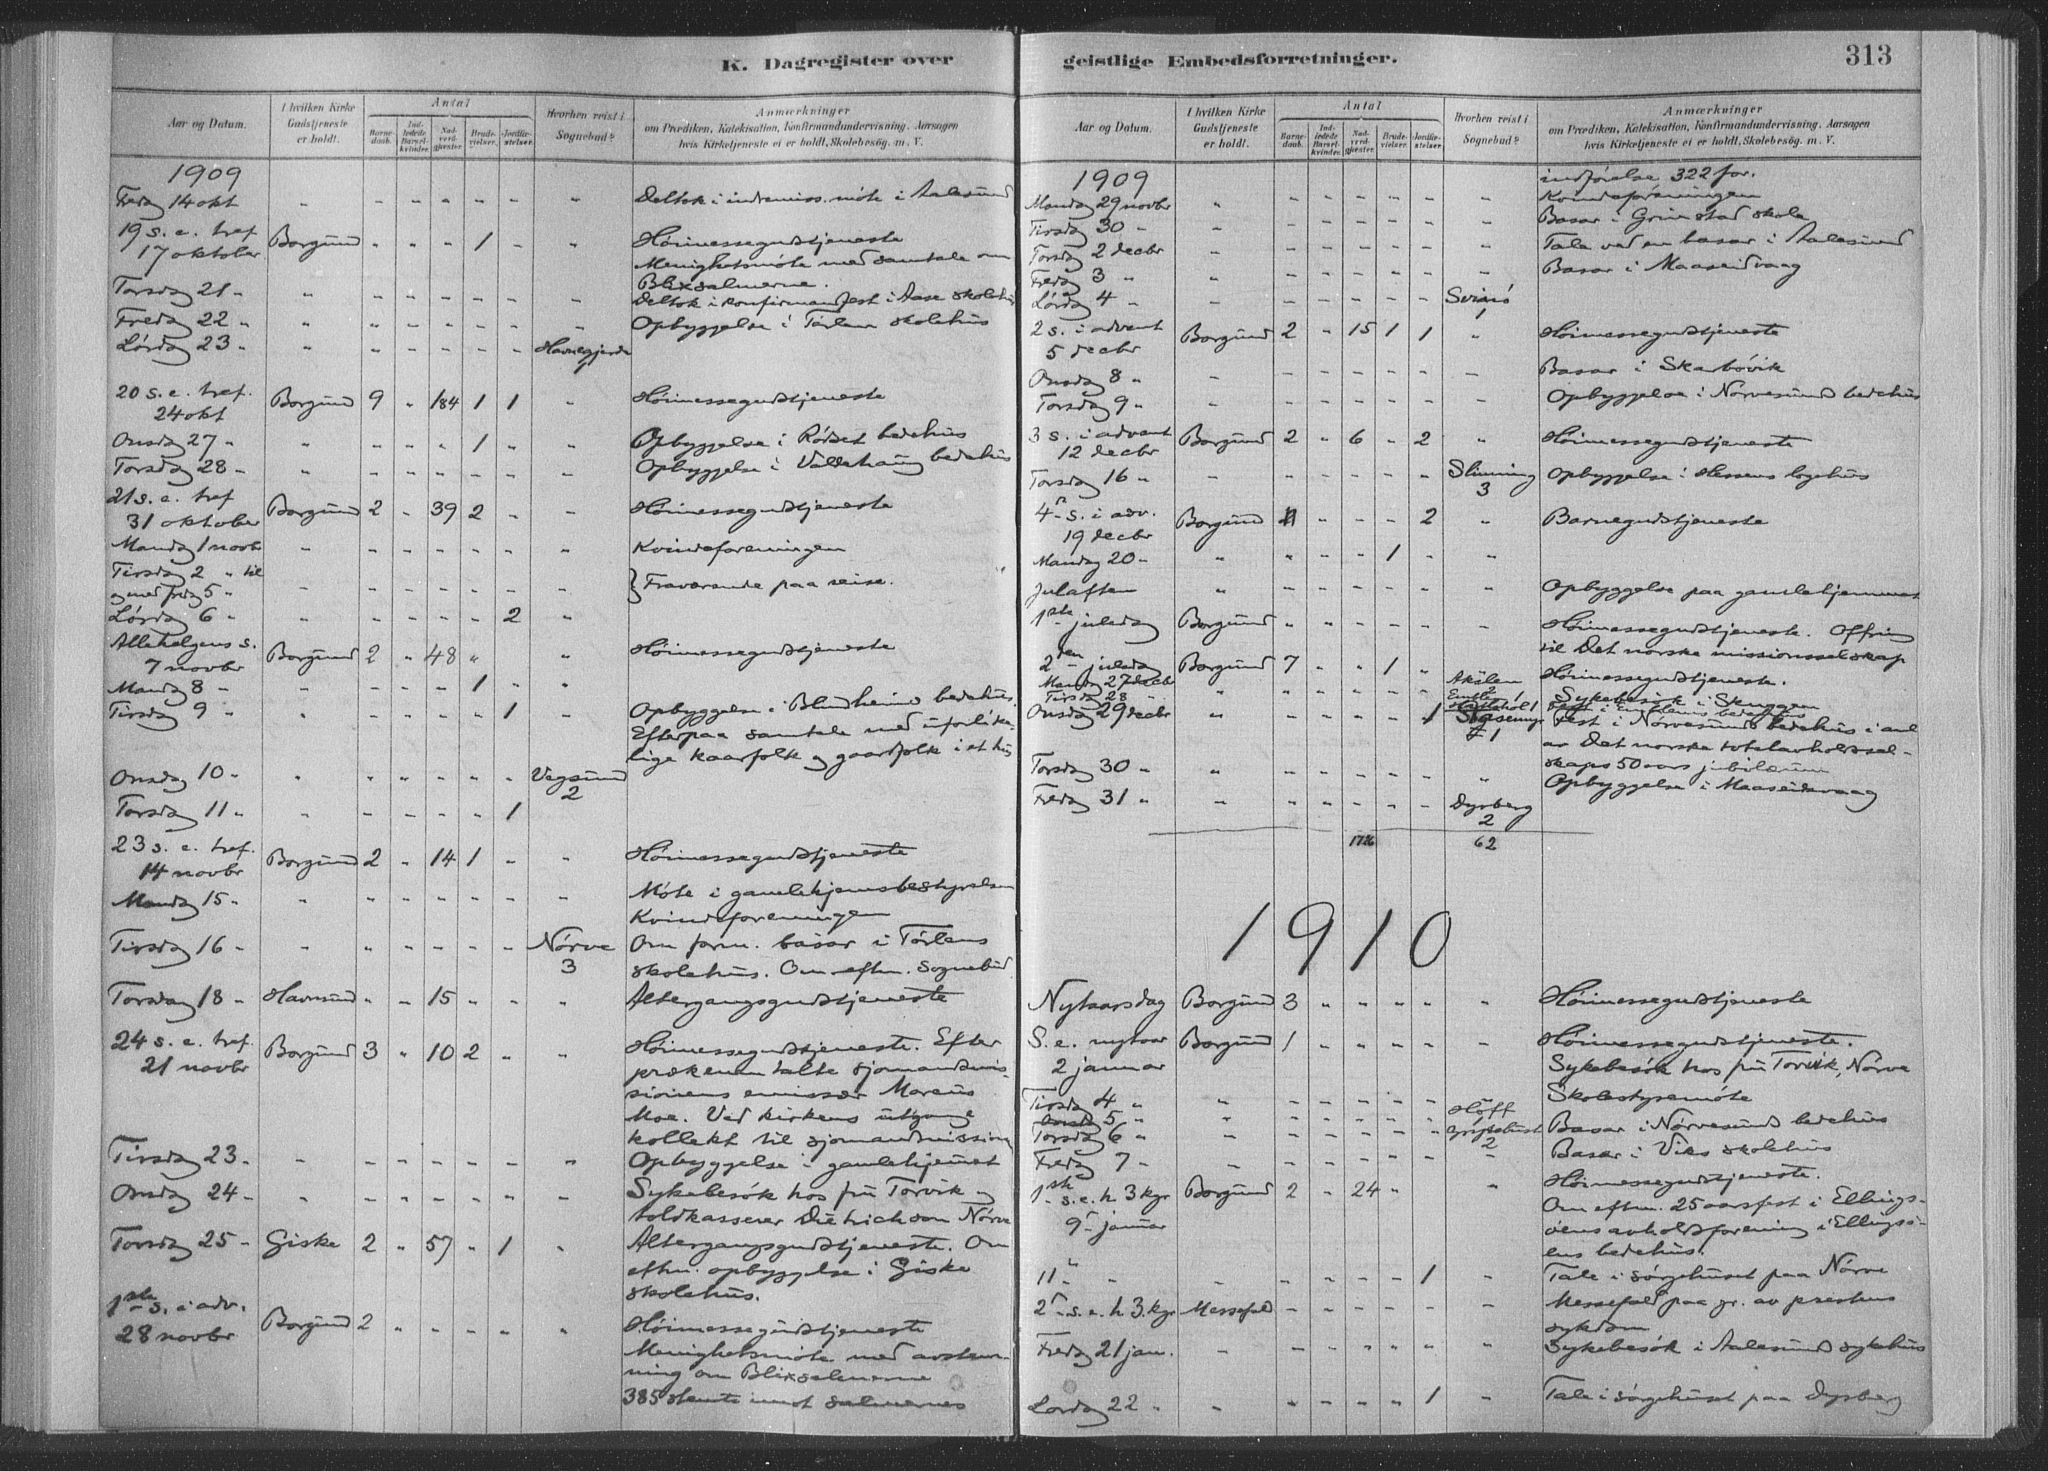 K. Dagregister over
Aar og Datum. I hvilken Kirke Gudstjeneste er holdt. Antal Barnedaab. Indledede Barselkvinder. Nadverdgjæster. Brudevielser. Jordfæstelser. Hvorhen reist i Sognebud? Anmærkninger om Prædiken, Katekisation, Konfirmandundervisning. Aarsagen hvis Kirketjeneste ei er holdt, Skolebesøg. m. V.
1909
Fredag 14 okt " " " " " " " Deltok i indremiss. møte i Aalesund
19 s. e. tref
17 oktober Borgund " " " 1 " " Høimessegudstjeneste
Menighetsmøte med samtale om
Blixsalmerne.
Torsdag 21 " " " " " " " " Deltok i konfirmanfest i Aase skolehus
Fredag 22 " " " " " " " " Opbyggelse i Tørlen skolehus
Lørdag 23 " " " " " " " Havnegjerde
20 s. e. tref.
24 okt Borgund 9 " 184 1 1 " Høimessegudstjeneste
Onsdag 27 " " " " " 1 " " Opbyggelse i Rødset bedehus
Torsdag 28 " " " " " " " " Opbyggelse i Valdehaug bedehus
21 s. e. tref
31 oktober Borgund 2 " 39 2 " " Høimessegudstjeneste
Mandag 1 novbr " " " " " " " Kvindeforeningen
Tirsdag 2 " til
og med fredag 5 " " " " " " " " } Fraværende paa reise.
Lørdag 6 " " " " " " 2 "
Allehelgens s.
7 novbr Borgund 2 " 48 " " Høimessegudstjeneste
Mandag 8 " " " " 1 " "
Tirsdag 9 " " " " " " 1 " Opbyggelse i Blindheims bedehus.
Efterpaa samtale med uforlike-
lige kaarfolk og gaardfolk i et hus
Onsdag 10 " " " " " " " Vegsund
2
Torsdag 11 " " " " " " 1
23 s. e. tref.
14 novbr Borgund 2 " 14 1 " " Høimessegudstjeneste
Mandag 15 " " " " " " " " Møte i gamlehjemsbestyrelsen
Kvindeforeningen
Tirsdag 16 " " " " " " " Nørve Om form. basar i Tørlens
3 skolehus. Om eftm. Sognebud
Torsdag 18 " Havnsund " " 15 " " " Altergangsgudstjeneste
24 s. e. tref.
21 novbr Borgund 3 " 10 2 " " Høimessegudstjeneste. Efter
prækenen talte sjomandsmis-
sionens emissær Marcus
Moe. Ved kirkens utgang
kollekt til sjomandsmissionen
Tirsdag 23 " " " " " " " " Opbyggelse i gamlehjemet
Onsdag 24 " " " " " " " " Sykebesøk hos fru Torvik og
toldkasserer Dietrichson Nørve
Torsdag 25 " Giske 2 " 57 " 1 " Altergangsgudstjeneste. Om
eftm. opbyggelse i Giske
skolehus.
1ste s. i adv.
28 novbr Borgund 2 " " " " " Høimessegudstjeneste
Menighetsmøte med avstem-
ning om Blixsalmerne
385 stemte imot salmernes
geistlige Embedsforretninger.
313
Aar og Datum. I hvilken Kirke Gudstjeneste er holdt. Antal Barnedaab. Indledede Barselkvinder. Nadverdgjæster. Brudevielser. Jordfæstelser. Hvorhen reist i Sognebud? Anmærkninger om Prædiken, Katekisation, Konfirmandundervisning. Aarsagen hvis Kirketjeneste ei er holdt, Skolebesøg. m. V.
1909 indførelse 322 for.
Mandag 29 novbr " " " " " " " Kvindeforeningen
Tirsdag 30 " " " " " " " " Basar i Grimstad skole
Torsdag 2 decbr " " " " " " " Tale ved en basar i Aalesund
Fredag 3 " " " " " " " " Basar i Maaseidvaag
Lørdag 4 " " " " " " " Svinø
1
2 s. i advent
5 decbr Borgund 2 " 15 1 1 " Høimessegudstjeneste
Onsdag 8 " " " " " " " " Basar i Skarbøvik
Torsdag 9 " " " " " " " " Opbyggelse i Nørvesund bedehus
3 s. i advent
12 decbr Borgund 2 " 6 " 2 " Høimessegudstjeneste
Torsdag 16 " " " " " " " Slinning Opbyggelse i Hessens logehus
3
4de s. i adv.
19 decbr Borgund " " " 2 " Barnegudstjeneste
Mandag 20 " " " " " 1 " "
Julaften " " " " " " " Opbyggelse paa gamlehjemmet
1ste juledag Borgund " " " " " " Høimessegudstjeneste. Offring
til Det norske missionsselskap
2den juledag Borgund 7 " " 1 " Høimessegudstjeneste.
Mandag 27 decbr Akslen
2
Tirsdag 28 " Sykebesøk i Skuggen
Onsdag 29 decbr " " " " " 1 fest i Nørvesund bedehus i anl
1 av Det norske totalavholdssel-
skaps 50 aars jubilæum
Torsdag 30 " " " " " " " " Opbyggelse i Maaseidvaag
Fredag 31 " " " " " " " Dyrberg
2
62
1910
Nytaarsdag Borgund 3 " " " " " Høimessegudstjeneste
S. e. nytaar
2 januar Borgund 1 " " " " " Høimessegudstjeneste.
Sykebesøk hos fru Torvik, Nørve
Tirsdag 4 " " " " " " " Skolestyremøte
Onsdag 5 " " " " " " " Høff
1 Basar i Nørvesund bedehus
Torsdag 6 " " " " " " "
2
Fredag 7 " " " " " " " " Basar i Viks skolehus
1ste s. e. h. 3 kgr
9 januar Borgund 2 " 24 " " Høimessegudstjeneste.
Om eftm. 25 aarsfest i Ellings-
øens avholdsforening i Ellingsø-
ens bedehus.
11 " " " " " " " 1 " Tale i sørgehuset paa Nørve
2den s. e. h. 3. kgr Messefald " " " " " " Messefald paa gr. av prestens
sykdom
Fredag 21 jan. " " " " " " " Sykebesøk i Aalesund sykehus
Lørdag 22 " " " " " " 1 " Tale i sørgehuset paa Dyrberg